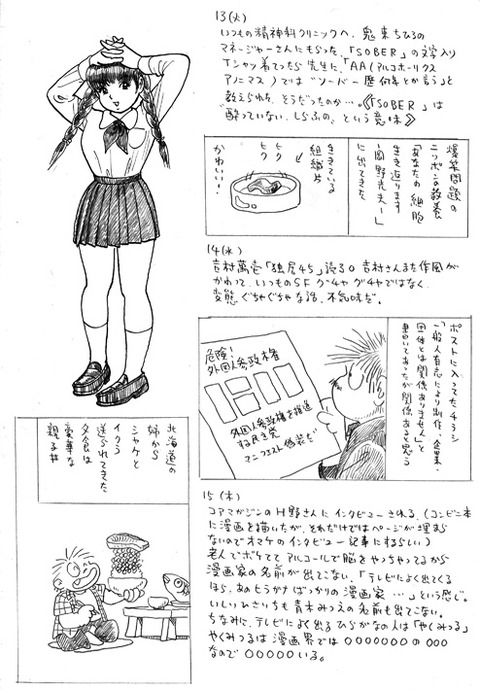 13(火)
いつもの精神科クリニックへ。鬼束ちひろの
マネージャーさんにもらった、「SOBER」の文字入り
Tシャツ着てったら先生に、「AA(アルコホーリクス
アノニマス)では“ソーバー歴何年とか言う」と
教えられた。そうだったのか…。《「SOBER」は
“酔っていない、しらふの、という意味》
爆笑問題の
ニッポンの教養
「あなたの細胞
生き返ります
―岡野光夫―」
に出てきた、
生きている
組織片
かわいい…
ヒク
ヒク
14(水)
吉村萬壱「独居45」読む。吉村さんまた作風が
かわって、いつものSFグチャグチャではなく、
変態ぐちゃぐちゃな話。不気味だ。
ポストに入ってたチラシ
「一般人有志により制作、企業・
団体とは関係ありません」と
書いてあったが関係あると思う
危険!
外国人参政権
外国人参政権を推進
する民主党
マニフェスト偽装だ
北海道の
姉から
シャケと
イクラ
送られてきた
夕食は
豪華な
親子丼
15(木)
コアマガジンのH野さんにインタビューされる。(コンビニ本
に漫画を描いたが、それだけではページが埋まら
ないのでオマケのインタビュー記事にするらしい)
老人でボケてて アルコールで脳をやっちゃってるから
漫画家の名前が出てこない。「テレビによく出てくる
ほら、あのヒラガナばっかりの漫画家…」という感じ。
いしいひさいちも青木みつえの名前も出てこない。
ちなみに、テレビによく出るひらがなの人は「やくみつる」
やくみつるは漫画界では〇〇〇〇〇〇〇の〇〇〇
なので〇〇〇〇〇いる。